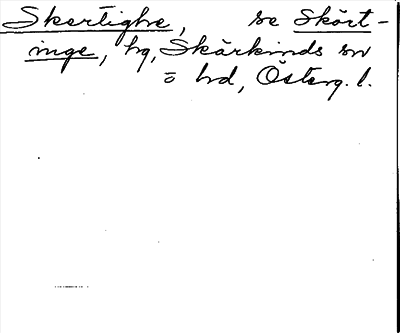 Skertighe, se Skört-
inge, hg, Skärkinds sn
o hd, Österg. l.